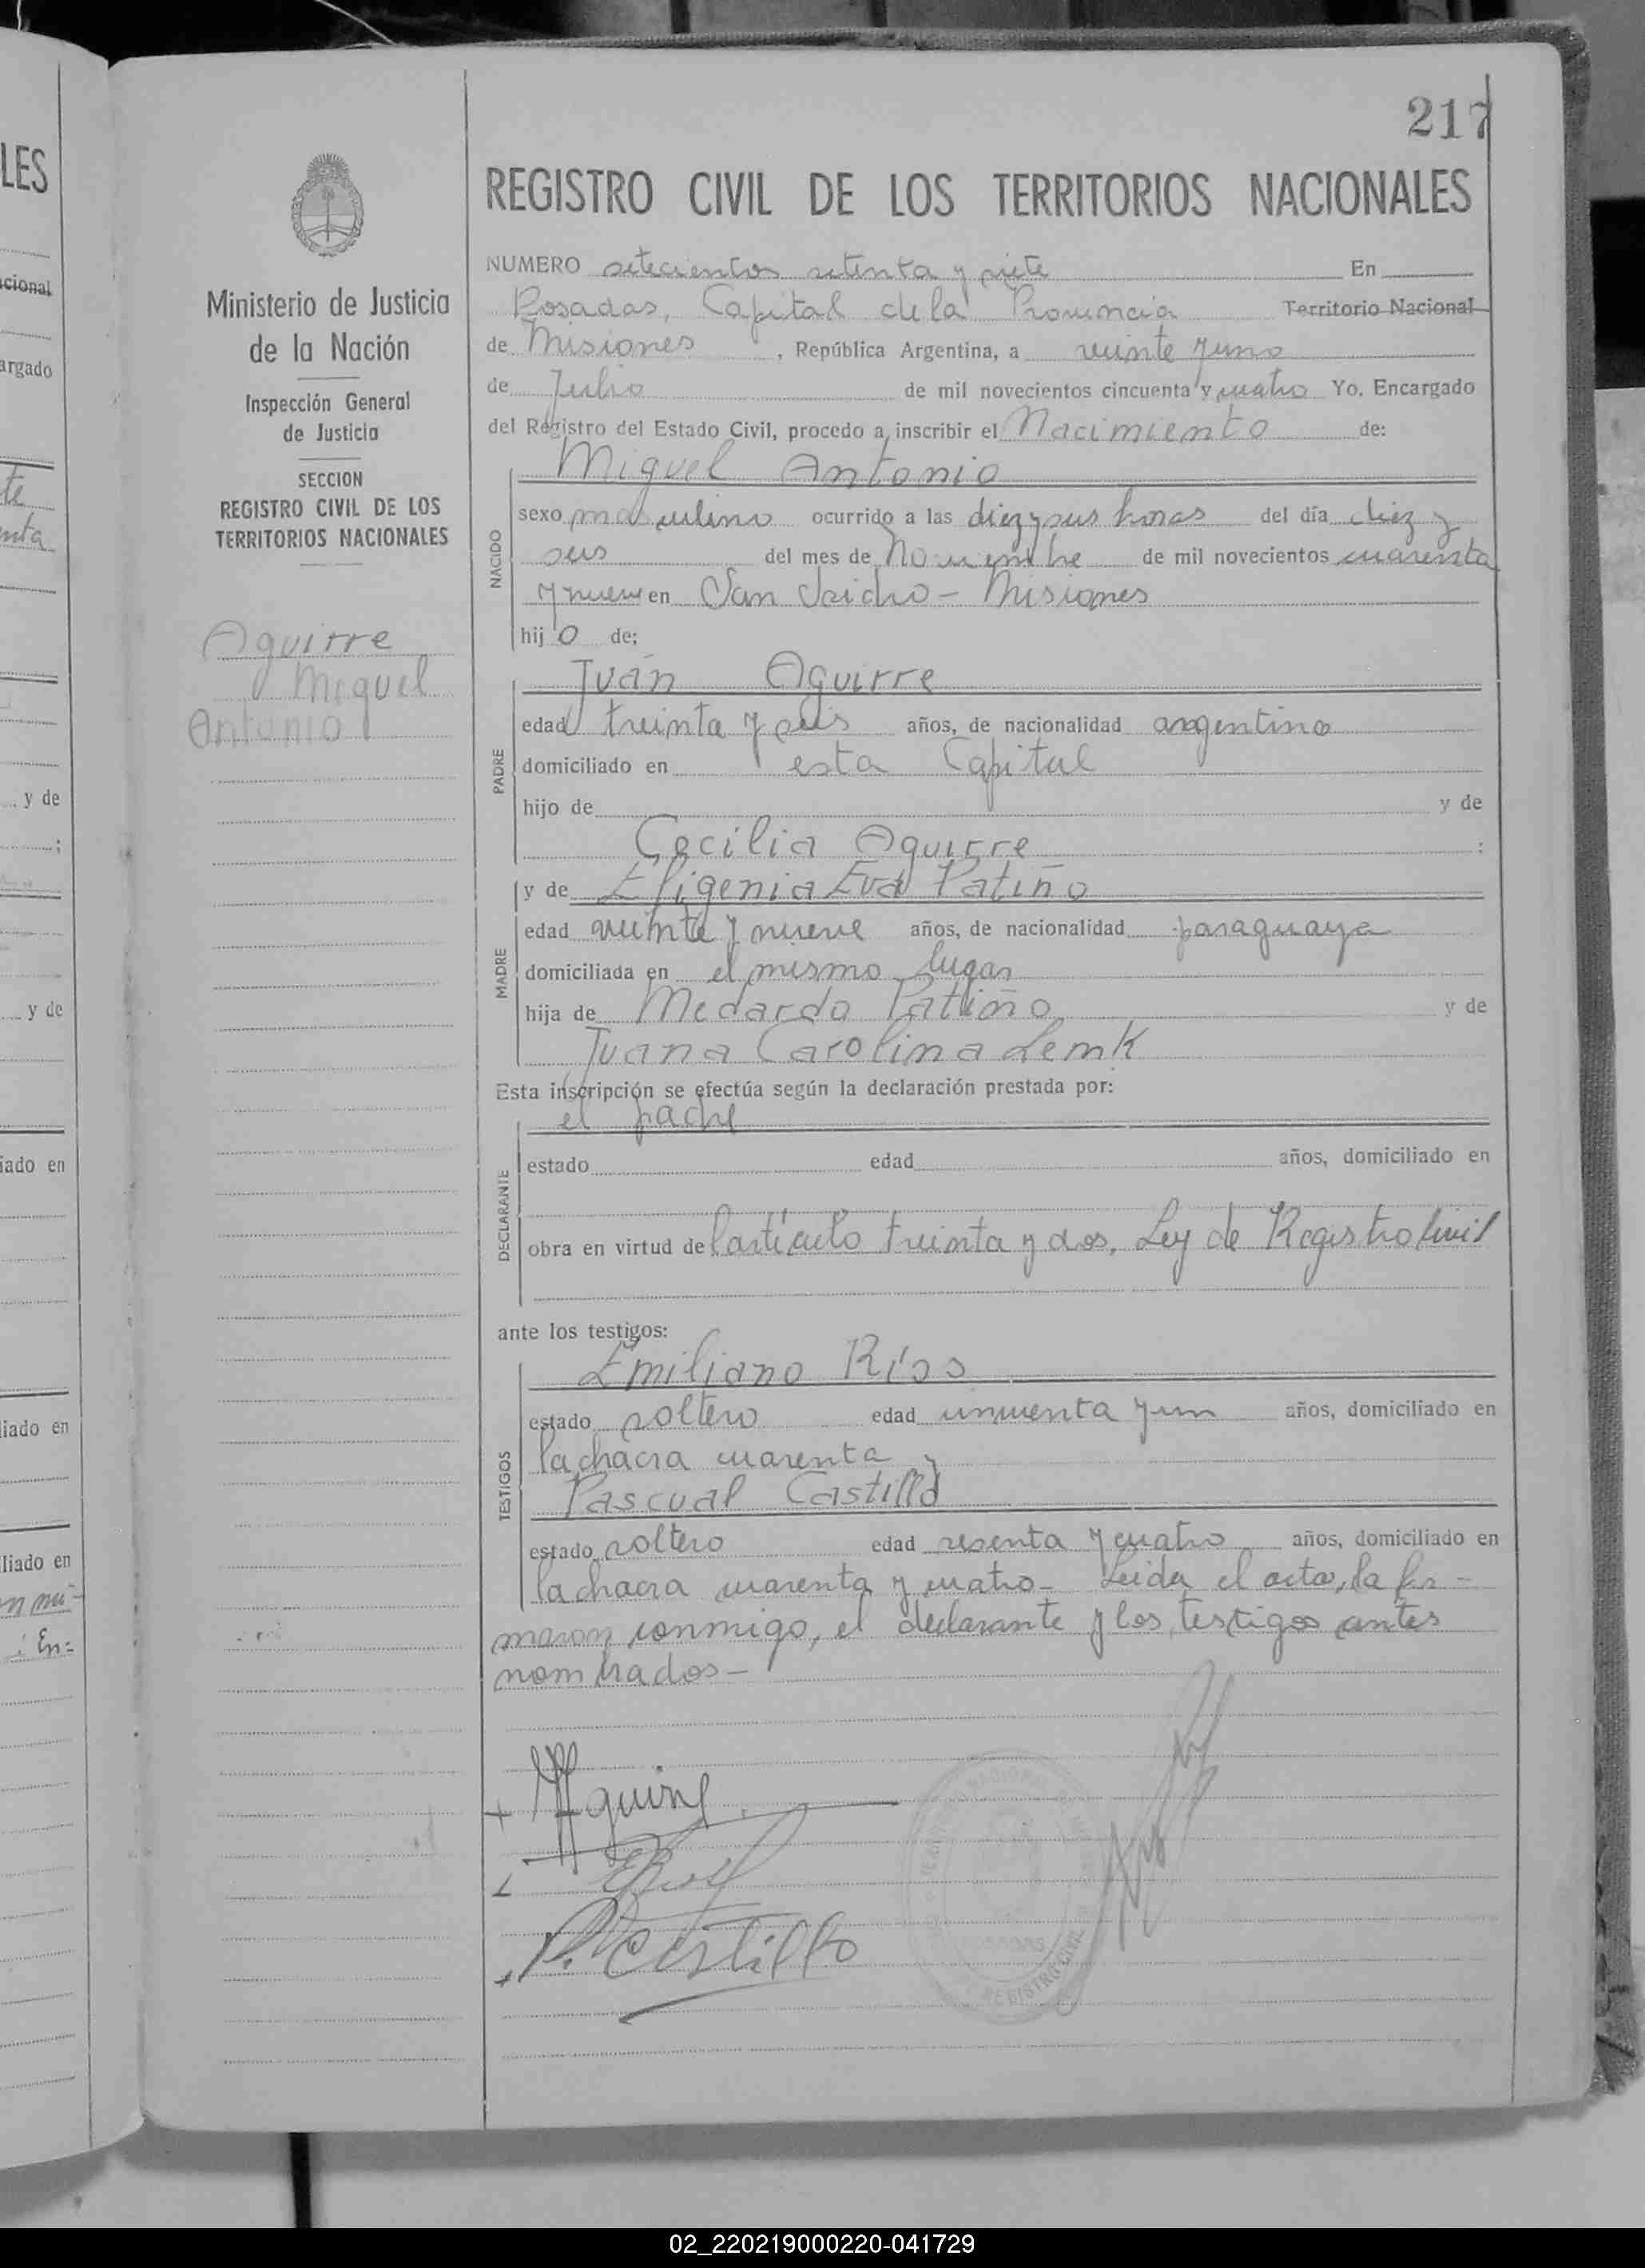 217
REGISTRO CIVIL DE LOS TERRITORIOS NACIONALES
Ministerio de Justicia
de la Nación
Inspección General
de Justicia
SECCION
REGISTRO CIVIL DE LOS
TERRITORIOS NACIONALES
Aguirre
Miguel
Antonio
NUMERO setecientos setenta y siete En
Posadas, Capital de la Provincia Territorio Nacional
de Misiones, República Argentina, a veinte y uno
de Julio de mil novecientos cincuenta y cuatro Yo, Encargado
del Registro del Estado Civil, procedo a inscribir el Nacimiento de:
NACIDO
Miguel Antonio
sexo masculino ocurrido a las diez y seis horas del día diez y
seis del mes de Noviembre de mil novecientos cuarenta
y nueve en San Isidro - Misiones
hijo de:
PADRE
Juán Aguirre
edad treinta y seis años, de nacionalidad argentino
domiciliado en esta Capital
hijo de y de
Cecilia Aguirre :
MADRE
y de Efigenia Eva Patiño
edad veinte y nueve años, de nacionalidad paraguaya
domiciliada en el mismo lugar
hija de Medardo Patiño y de
Juana Carolina Lemk
Esta inscripción se efectúa según la declaración prestada por:
DECLARANTE
el padre
estado edad años, domiciliado en
obra en virtud del artículo treinta y dos, Ley de Registro Civil
ante los testigos:
TESTIGOS
Emiliano Ríos
estado soltero edad cincuenta y un años, domiciliado en
la chacra cuarenta y
Pascual Castillo
estado soltero edad sesenta y cuatro años, domiciliado en
la chacra cuarenta y cuatro - Leida el acta, la fir-
maron conmigo, el declarante y los testigos antes
nombrados -
Aguirre
P. Castillo
REGISTRO CIVIL
LES
cional
argado
te
nta
y de
y de
iado en
liado en
liado en
02_220219000220-041729